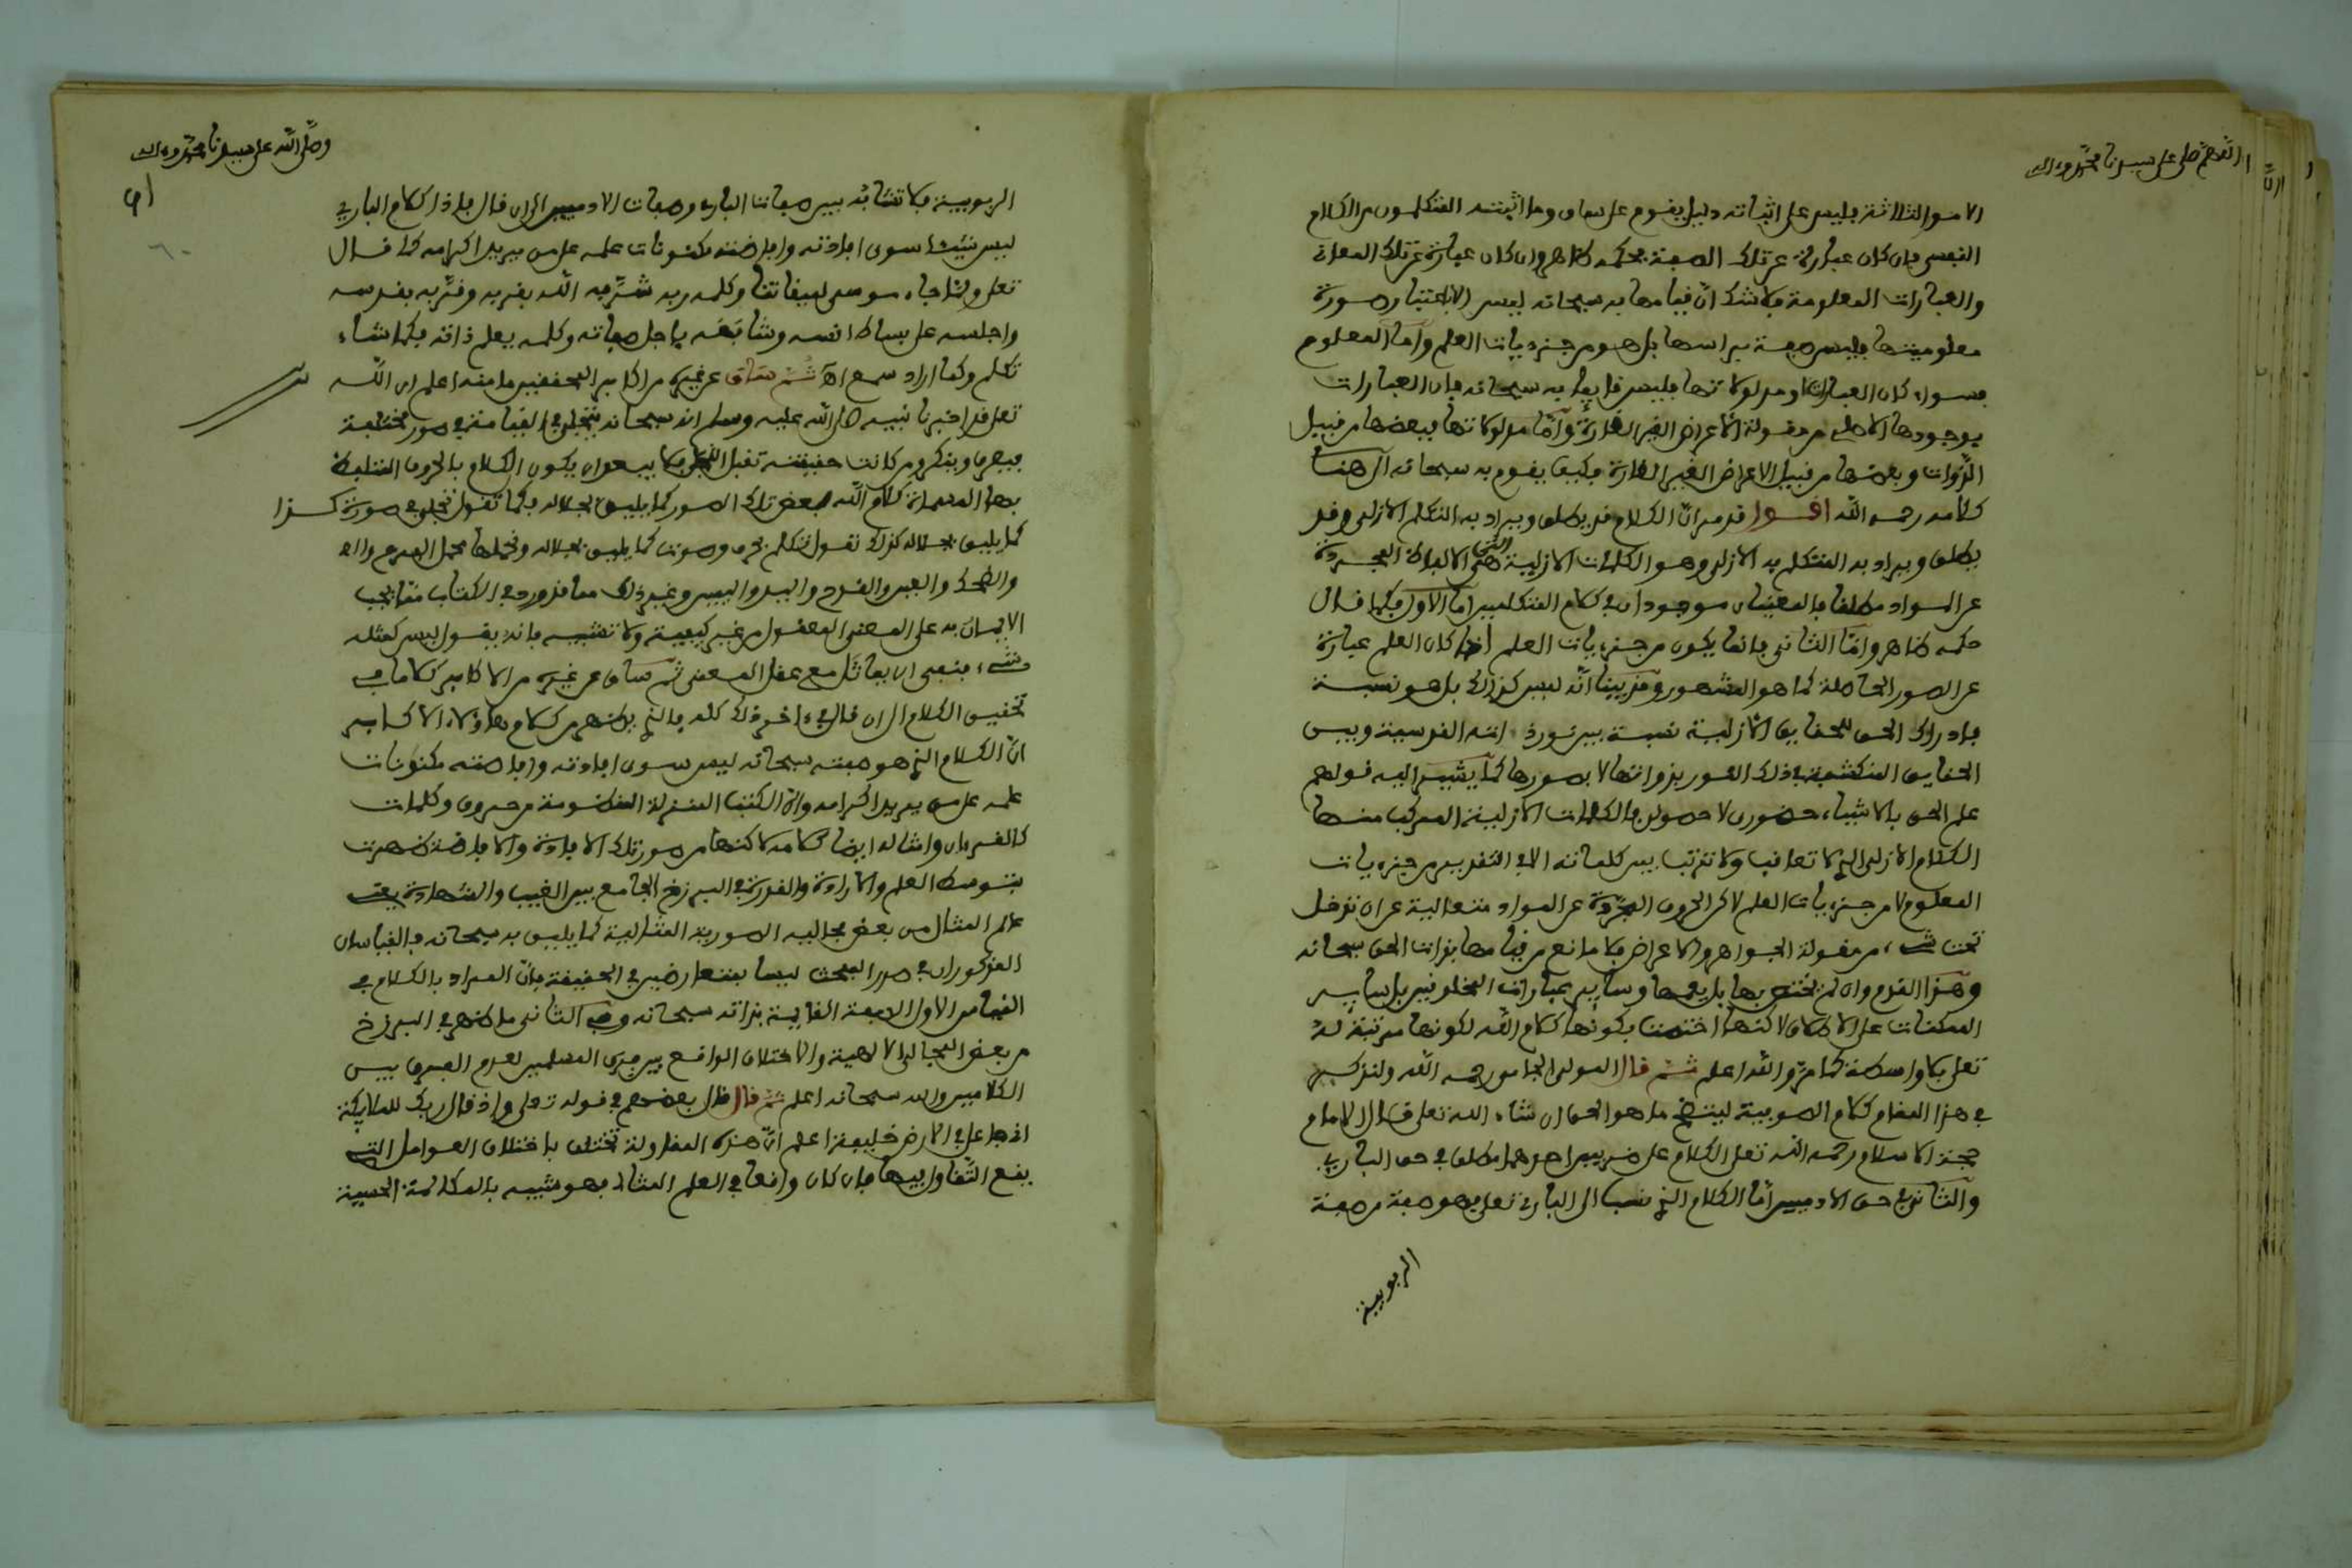 اللهم صل على سيدنا محمد وءاله
الامور الثلاثة فليس على اثباته دليل يقوم على ساق وما اثبته المتكلمون من الكلام
النفسي فان كان عبارة عن تلك الصفة فحكمه ظاهر وان كان عبارة عن تلك المعاني
والعبارات المعلومة فلا شك انّ قيامها به سبحانه ليس الا باعتبار صورة
معلوميتها فليس صفة براسها بل هو من جزءيات العلم وامّا المعلوم
فسواء كان العبارات او مدلولاتها فليس قايما به سبحانه فان العبارات
بوجودها الاصلي من مقولة الاعراض الغير القارّة وامّا مدلولاتها فبعضها من قبيل
الذّوات وبعضها من قبيل الاعراض الغير القارة فكيف يقوم به سبحانه الى هنا
كلامه رحمه الله اقول قد مر انّ الكلام قد يطلق ويراد به التكلم الازلي وقد
يطلق ويراد به المتكلم به الازلي وهو الكلمات الازلية التي هي الالفاظ المجردة
عن المواد مطلقا فالمعنيان موجودان في كلام المتكلمين امّا الاول فكما قال
حكمه ظاهر وامّا الثاني فانما يكون من جزءيات العلم اذا كان العلم عبارة
عن الصور الحاصلة كما هو المشهور وقد بينا انّه ليس كذلك بل هو نسبة
فادراك الحق للحقايق الازلية نسبة بين نور ذاته القدسية وبين
الحقايق المنكشفة في ذلك النور بذواتها لا بصورها كما يشير اليه قولهم
علم الحق بالاشياء حضوري لا حصولي فالكلمات الازلية المركب منها
الكلام الازلي الذي لا تعاقب ولا ترتب بين كلماته الا في التقدير من جزءيات
المعلوم لا من جزءيات العلم لاكن الحروف المجرّدة عن المواد متعالية عن ان تدخل
تحت شيء من مقولة الجواهر والاعراض فلا مانع من قيامها بذات الحق سبحانه
وهذا القدم وان لم يختص بها بل يعمها وساير عبارات المخلوقين بل ساير
الممكنات على الاطلاق لاكنها اختصت بكونها كلام الله لكونها مرتبة له
تعلى بلا واسطة كما مرّ والله اعلم ثم قال المولى الجامي رحمه الله ولنذكر
في هذا المقام كلام الصوفية ليتضح ما هو الحق ان شاء الله تعلى قال الامام
حجة الاسلام رحمه الله تعلى الكلام على ضربين احدهما مطلق في حق الباري
والثاني في حق الادميين امّا الكلام الذي ينسب الى الباري تعلى فهو صفة من صفة
الربوبية
وصلى الله على سيدنا محمد وءاله
الربوبية فلا تشابه بين صفات الباري وصفات الادميين الى ان قال فاذا كلام الباري
ليس شيئا سوى افادته وافاضته مكنونات علمه على من يريد اكرامه كما قال
تعلى ولما جاء موسى لميقاتنا وكلمه ربه شرّفه الله بقربه وقرّبه بقدسه
واجلسه على بساط انسه وشافهه باجل صفاته وكلمه بعلم ذاته فكما شاء
تكلم وكما اراد سمع اهـ ثم ساق عن غيره من اكابر المحققين ما منه اعلم ان الله
تعلى قد اخبرنا نبيه صلى الله عليه وسلم انه سبحانه يتجلى في القيامة في صور مختلفة
فيعرف وينكر ومن كانت حقيقته تقبل التجلي فلا يبعد ان يكون الكلام بالحروف المتلفظ
بها المسماة كلام الله لبعض تلك الصور كما يليق بجلاله فكما تقول تجلى في صورة كذا
كما يليق بجلاله كذلك تقول تكلم بحرف وصوت كما يليق بجلاله ونحملها محمل الفرح
والضحك والعين والقدم واليد واليمين وغير ذلك مما قد ورد في الكتاب ممّا يجب
الايمان به على المعنى المعقول من غير كيفية ولا تشبيه فانه يقول ليس كمثله
شيء فنفى ان يماثل مع عقل المعنى ثم ساق عن غيره من الاكابر كلاما في
تحقيق الكلام الى ان قال في ءاخر ذلك كله فالذي يظهر من كلام هاؤلاء الاكابر
انّ الكلام الذي هو صفته سبحانه ليس سوى افادته وافاضته مكنونات
علمه على من يريد اكرامه وانّ الكتب المنزلة المنظومة من حروف وكلمات
كالقرءان وامثاله ايضا كلامه لاكنها من صور تلك الافادة والافاضة ظهرت
بتوسط العلم والارادة والقدرة في البرزخ الجامع بين الغيب والشهادة يعني
عالم المثال من بعض مجاليه الصورية المثالية كما يليق به سبحانه فالقياسان
المذكوران في صدر المبحث ليسا بمتعارضين في الحقيقة فانّ المراد بالكلام في
القياس الاول الصفة القايمة بذاته سبحانه وفي الثاني ما ظهر في البرزخ
من بعض المجالي الالاهية والاختلاف الواقع بين فرق المسلمين لعدم الفرق بين
الكلامين والله سبحانه اعلم ثم قال قال بعضهم في قوله تعلى واذ قال ربك للملايكة
اني جاعل في الارض خليفة اعلم انّ هذه المقاولة تختلف باختلاف العوالم التي
يقع التّقاول فيها فان كان واقعا في العلم المثالي فهو شبيه بالمكالمة الحسية